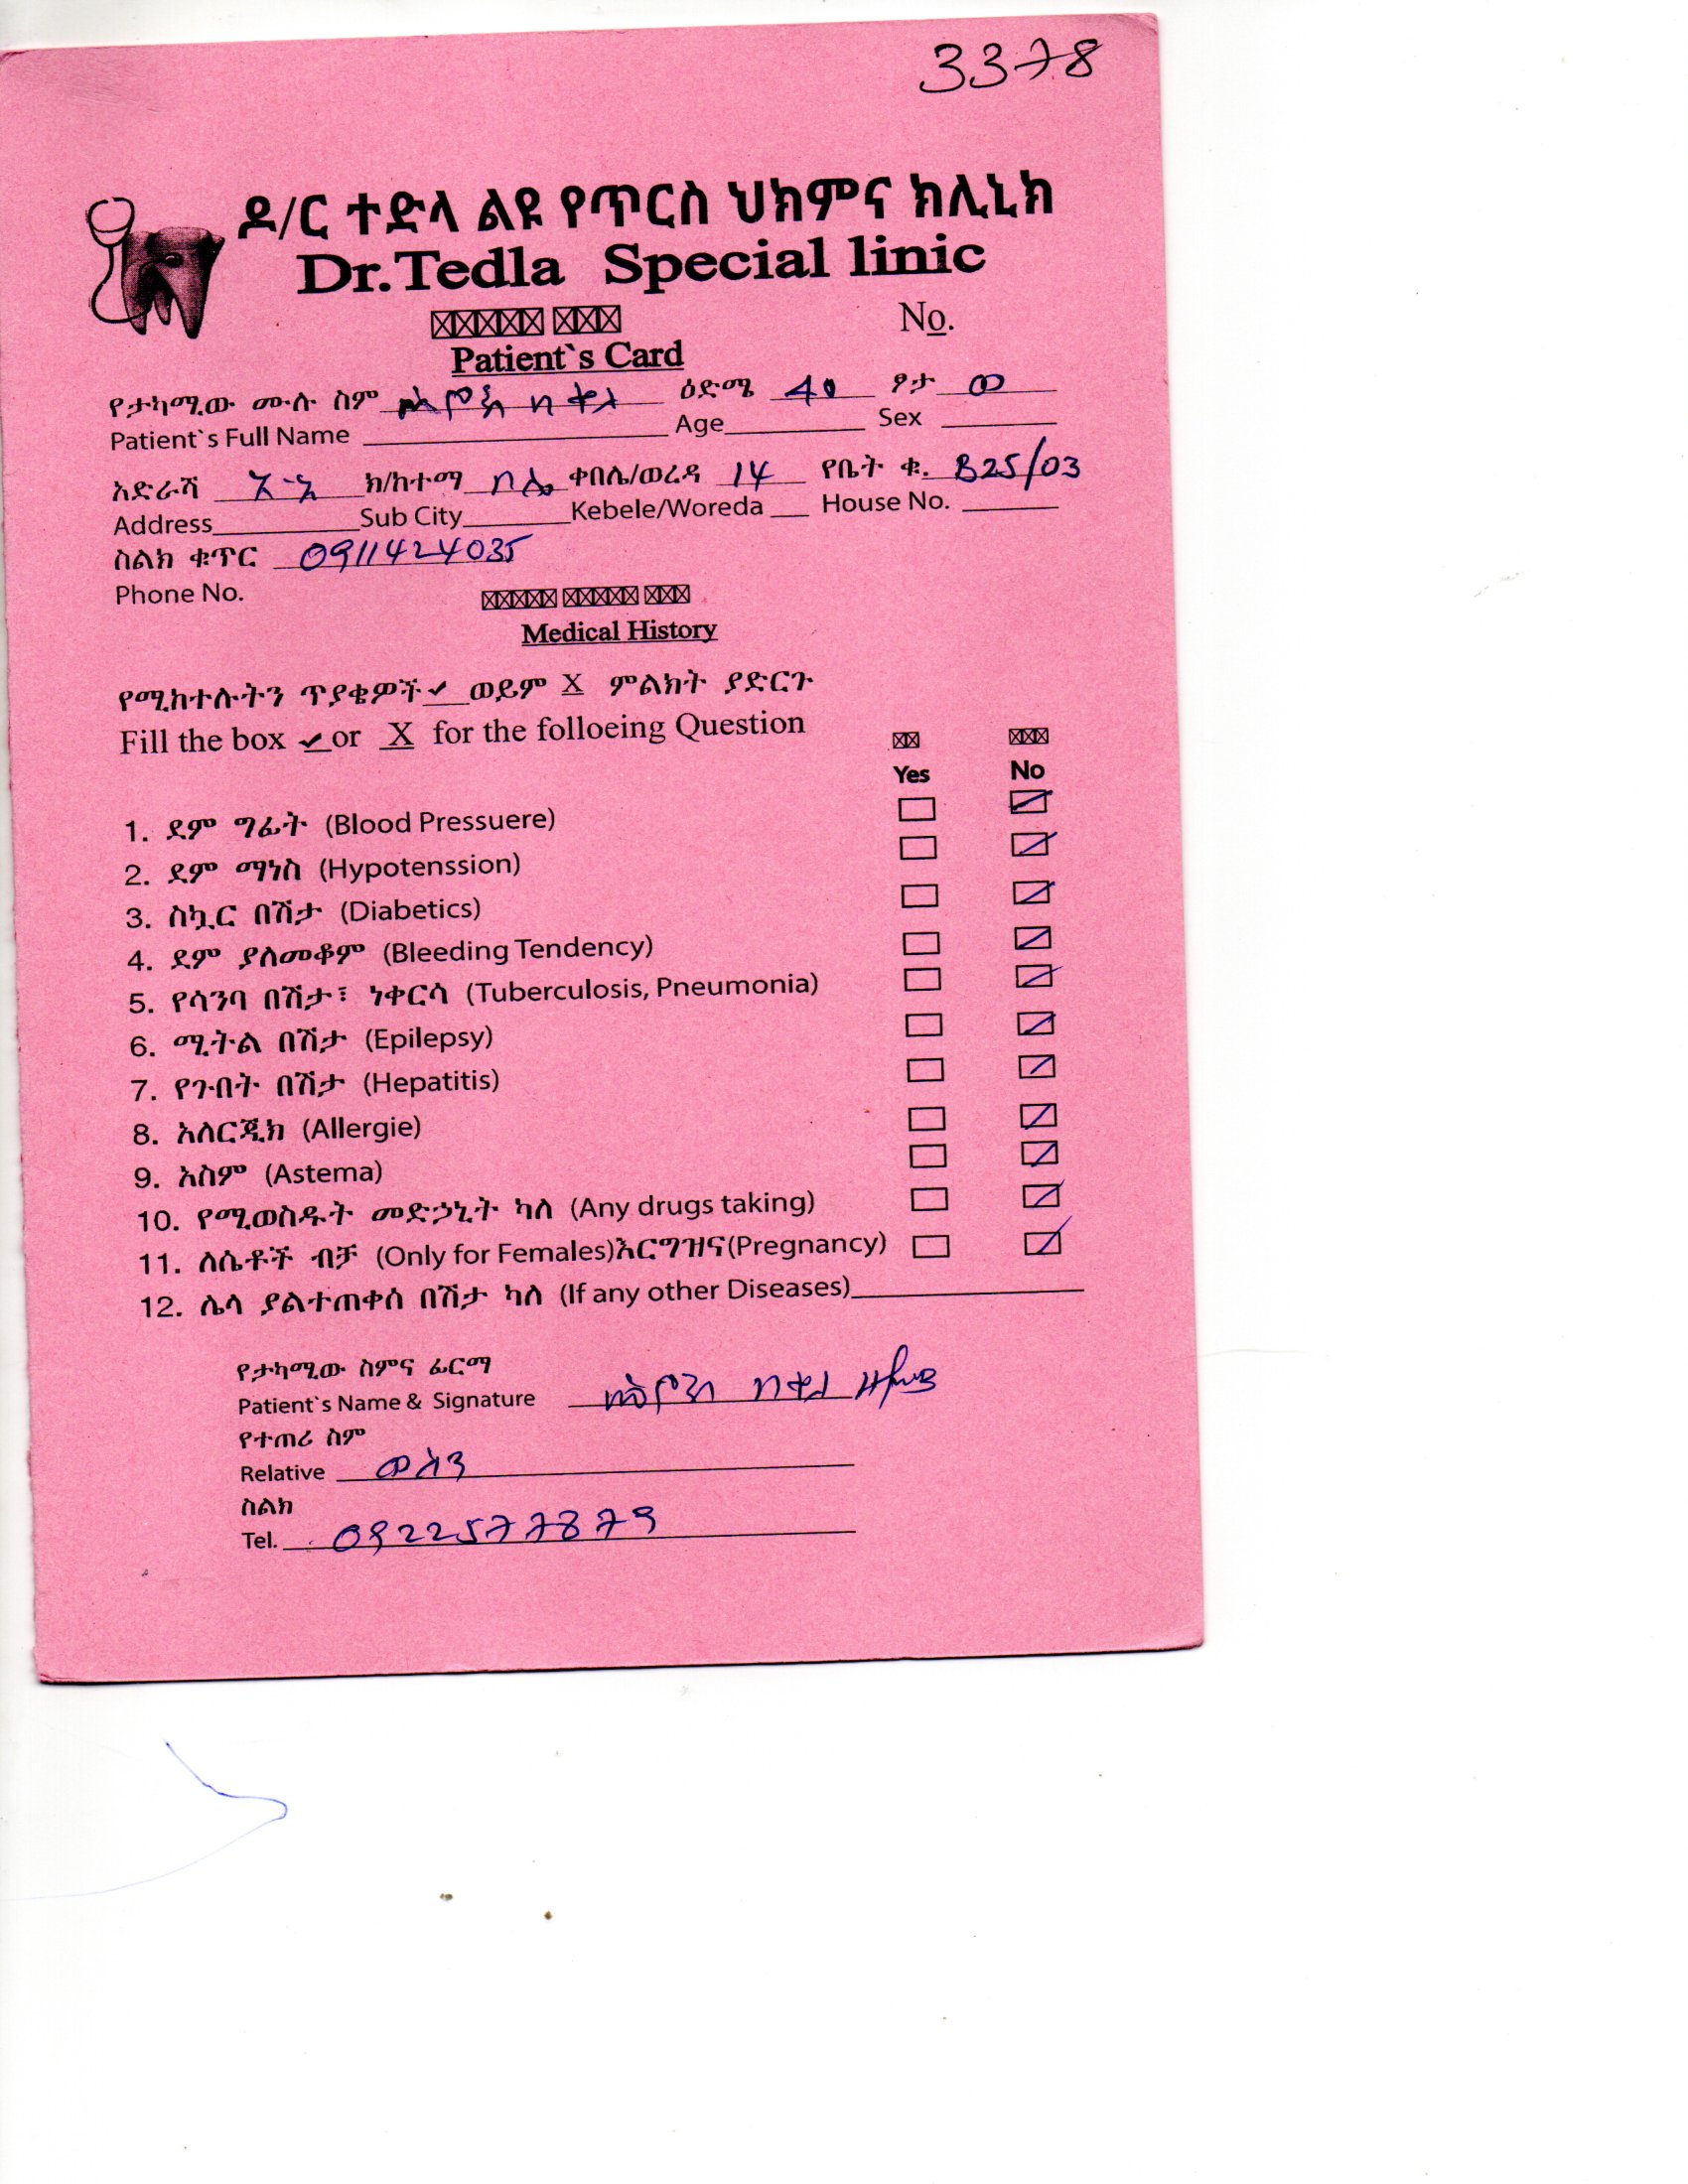 3378
ዶ/ር ተድላ ልዩ የጥርስ ህክምና ክሊኒክ
Dr.Tedla Special linic
No.
Patient`s Card
የታካሚው ሙሉ ስም በቀለ ዕድሜ 40 ፆታ ወ
Patient`s Full Name Age Sex
አድራሻ አ.አ ክ/ከተማ ቦሌ ቀበሌ/ወረዳ 14 የቤት ቁ. B25/03
Address Sub City Kebele/Woreda House No.
ስልክ ቁጥር 0911424035
Phone No.
Medical History
የሚከተሉትን ጥያቄዎች ✓ ወይም X ምልክት ያድርጉ
Fill the box ✓ or X for the folloeing Question
Yes No
1. ደም ግፊት (Blood Pressuere)
2. ደም ማነስ (Hypotenssion)
3. ስኳር በሽታ (Diabetics)
4. ደም ያለመቆም (Bleeding Tendency)
5. የሳንባ በሽታ፣ ነቀርሳ (Tuberculosis, Pneumonia)
6. ሚትል በሽታ (Epilepsy)
7. የጉበት በሽታ (Hepatitis)
8. አለርጂክ (Allergie)
9. አስም (Astema)
10. የሚወስዱት መድኃኒት ካለ (Any drugs taking)
11. ለሴቶች ብቻ (Only for Females)እርግዝና(Pregnancy)
12. ሌላ ያልተጠቀሰ በሽታ ካለ (If any other Diseases)
የታካሚው ስምና ፊርማ
Patient`s Name & Signature በቀለ
የተጠሪ ስም
Relative
ስልክ
Tel. 0922577879